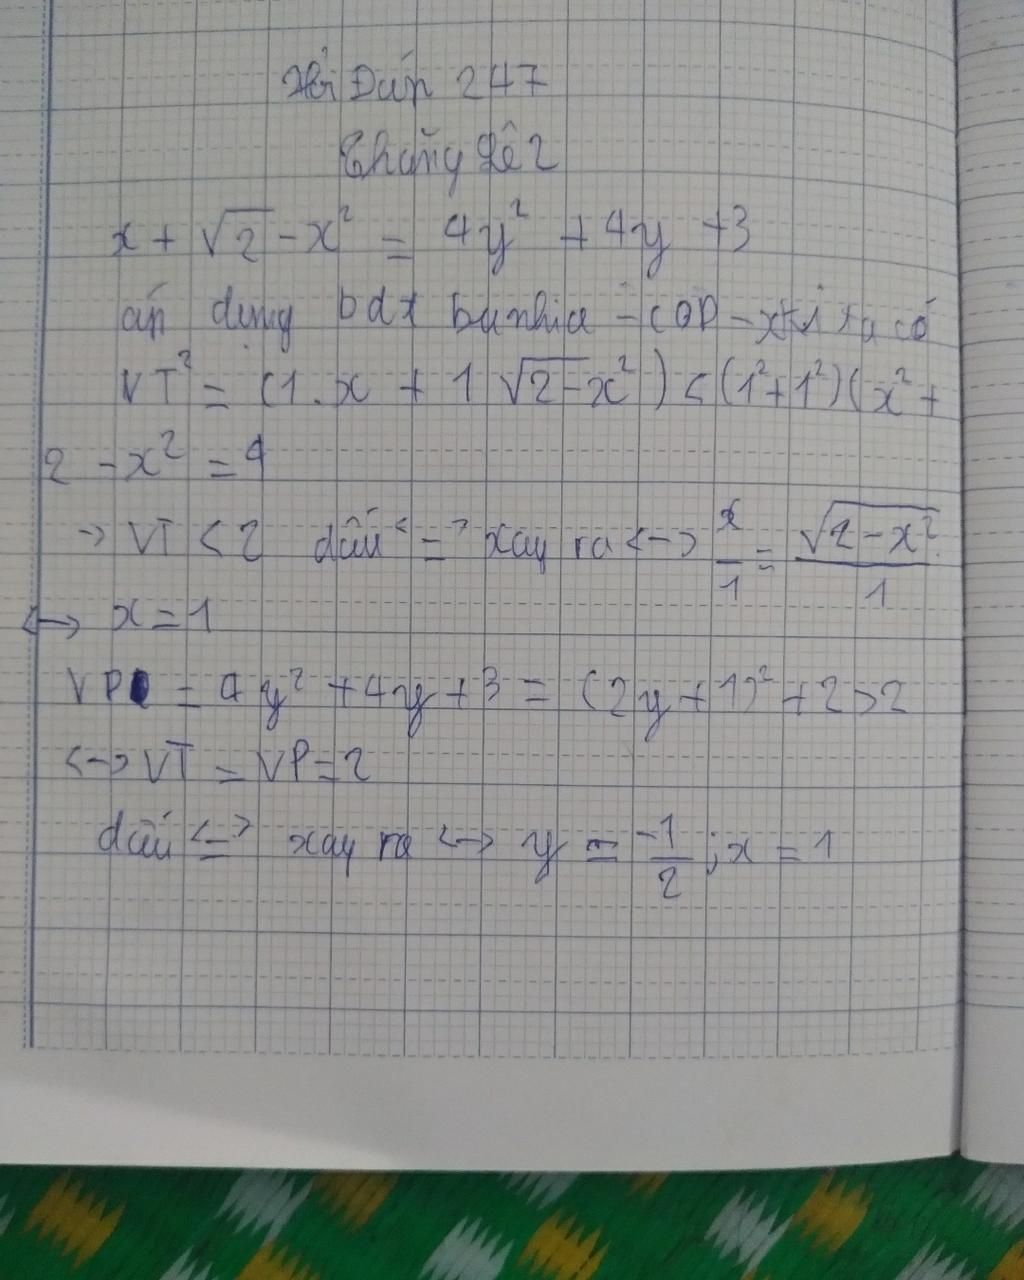 Hỏi Đáp 247
x + √2 - x² = 4y² + 4y + 3
áp dụng bdt bunhia - cop - xki ta có
VT² = (1.x + 1 √2-x²) < (1²+1²)(x² +
2 - x² = 4
→ VT < 2 dấu "=" xay ra <-> x/1 = √2-x²/1
<-> x = 1
VP = 4y² + 4y + 3 = (2y + 1)² + 2 > 2
<-> VT = VP = 2
dấu "=" xay ra <-> y = -1/2 ; x = 1